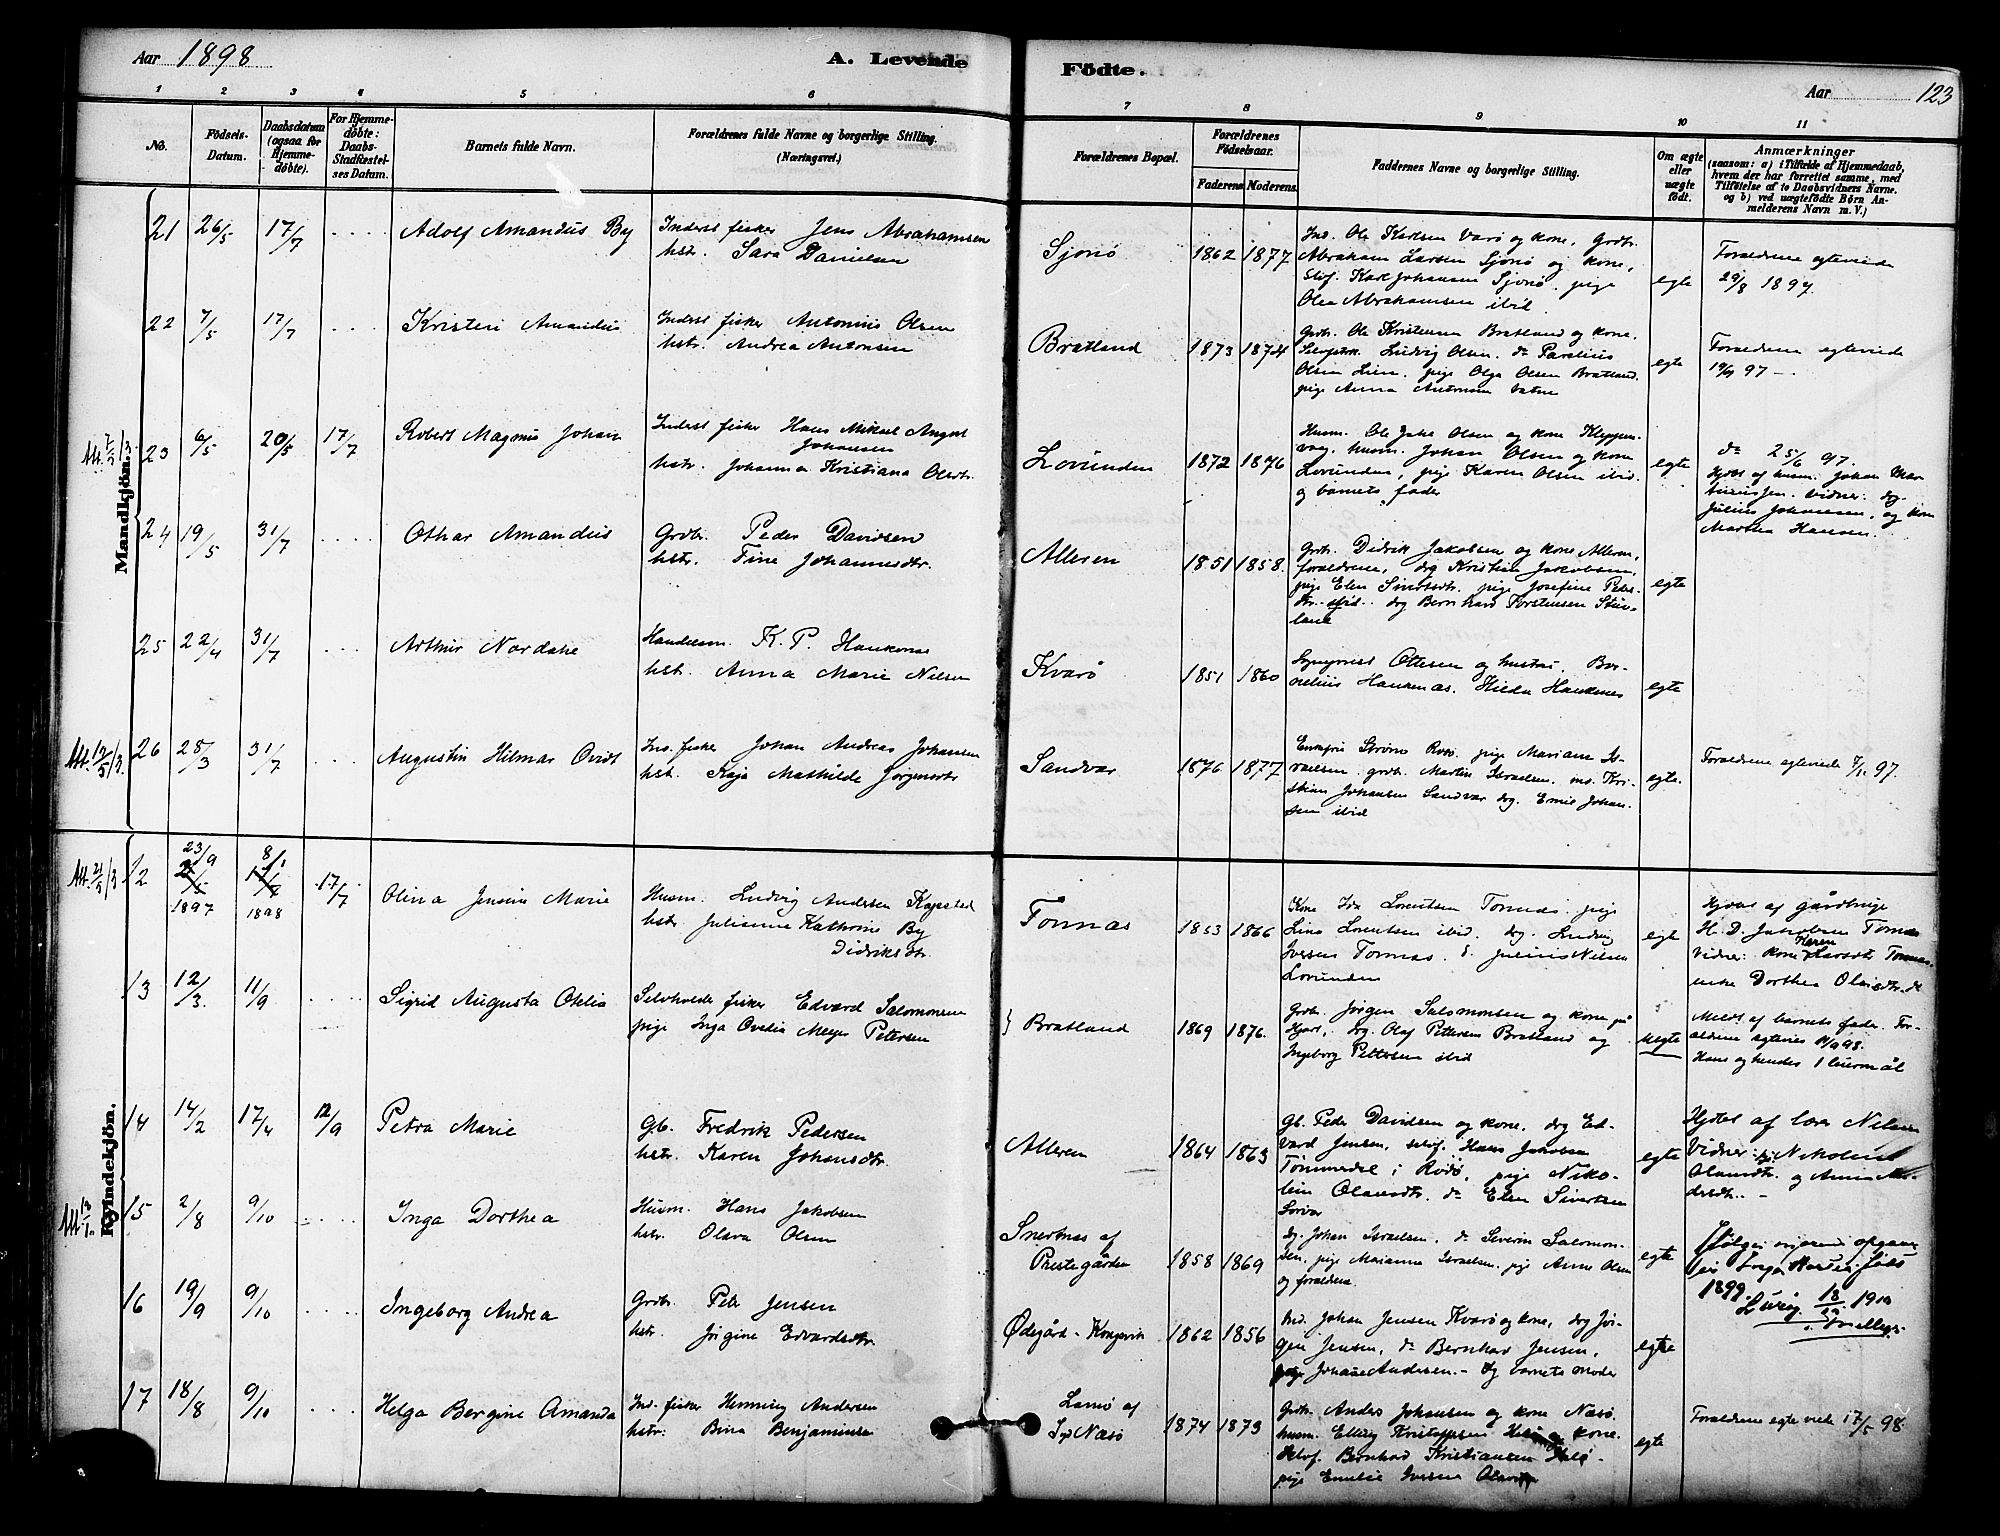 Aar 1898
A. Levende
Födte.
Aar 123
1 2 3 4 5 6 7 8 9 10 11
No.
Födsels-Datum.
Daabsdatum (ogsaa for Hjemme-döbte).
For Hjemme-döbte: Daabs-Stadfæstel-ses Datum.
Barnets fulde Navn.
Forældrenes fulde Navne og borgerlige Stilling.
(Næringsvei.)
Forældrenes Bopæl.
Forældrenes Födselsaar.
Faderens. Moderens.
Faddernes Navne og borgerlige Stilling.
Om ægte eller uægte födt.
Anmærkninger
(saasom: a) i Tilfælde af Hjemmedaab,
hvem der har forrettet samme, med
Tilföielse af to Daabsvidners Navne.
og b) ved uægtefödte Börn An-
melderens Navn m. V.)
Mandkjön.
21 26/5 17/7 Adolf Amandus By
Inderst fisker Jens Abrahamsen
hst. Sara Danielsen
Sjonö 1862 1877
Ind. Ole Karlsen Varö og kone, Grdbr.
Abraham Larsen Sjonö og kone,
Slof. Karl Johansen Sjonö, pige
Olea Abrahamsen ibid.
egte
Forældrene egteviede
29/8 1897.
22 7/5 17/7 Kristen Amandus
Inderst fisker Antonius Olsen
hstr. Andrea Antonsen
Bratland 1873 1874
Grdb. Ole Kristensen Bratland og kone,
Ludvig Olsen, do Parelius
Olsen Lien, pige Olga Olsen Bratland,
pige Anna Antonsen
egte
Forældrene egteviede
97 -
23 6/5 20/5 17/7 Robert Magnus Johan
Inderst fisker Hans Mikael August
Johansen
hstr. Johanna Kristiana Olsdtr.
Lovunden 1872 1876
Husm. Ole Olsen og kone Kleppen-
vaag, husm. Johan Olsen og kone
Lovunden, pige Karen Olsen ibid.
og barnets fader
egte
do 25/6 97.
Hjdbt af husm. Johan Mar-
vidner: dg.
Julius Johansen, og kone
Martha Hansen.
24 19/5 31/7 Othar Amandus
Grdbr. Peder Davidsen
hstr. Tine Johannesdtr.
Alleren 1851 1858.
Grdb. Didrik Jakobsen og kone Alleren,
forældrene, drg Kristian Jakobsen,
pige Elen pige Josefine Peders-
dtr. ibid. drg Bernhard Torstensen
egte
25 22/4 31/7 Arthur Nordahl
Handelsm. K. P. Haukenæs
hst. Anna Marie Nielsen
Kvarö 1851 1860
Ottesen og hustru, Bor-
nelius Haukenæs, Hilda Haukenes
egte
26 28/3 31/7 Augustin Hilmar Ovidt
Ind. fisker Johan Andreas Johansen
hst. Kaja Mathilde Jørgensdtr
Sandvær 1876 1877
Ström Rodö, pige Mariane Is-
raelsen, grdb. Martin Israelsen, ind. Kri-
stian Johansen Sandvær drg. Emil Johan-
sen ibid
egte.
Forældrene egteviede 97.
Kvindekjön.
12 23/9 1897 8/1 1898 17/7 Olina Jensine Marie
Husm. Ludvig Andersen Kopsted
hstr. Julianne Kathrine By
Didriksdtr.
Tonnæs 1853 1866
Kone Ida Lorentsen Tonnæs, pige
Lina Lorentsen ibid. drg. Ludvig
Iversen Tonnæs. d. Julius Nilsen
Lovunden
egte
Hjdbt af gårdbruger
H. D. Jakobsen Tonnæs
Vidner: kone Karen Tonnæs
enke Dorthea Olaisdtr. do
13 12/3 11/9 Sigrid Augusta Otelia
Selvholds fisker Edvard Salomonsen
pige Inga Ovidia Meyer Petersen
Bratland 1869 1876.
Grdb. Jörgen Salomonsen og kone på
Hjart, drg. Olaf Pettersen Bratland og
Ingeborg Pettersen ibid
uegte
Meldt af barnets fader. For-
ældrene egteviet 11/9 98.
Hans og hendes 1 leiermål
14 14/2 17/4 12/9 Petra Marie
Gb. Fredrik Pedersen
hstr. Karen Johansdtr.
Alleren 1864 1863
Gb. Peder Davidsen og kone, drg Ed-
vard Jensen, selvf. Hans Jakobsen
Tömmerdal i Rödö, pige Niko-
lein Olausdtr. do Elen Sivertsen
Sorvær
egte
Hjdbt af Lars Nilsen
Vidner: pi. Nikoline
Olausdtr. og Anna An-
dersdtr. -
15 2/8 9/10 Inga Dorthea
Husm. Hans Jakobsen
hstr. Olava Olsen
Snertnæs af
Prestegården 1858 1869
dg. Johan Israelsen, do Severin Salomon-
sen, pige Marianne Israelsen, pige Anne Olsen
og forældrene.
egte
Ifölge opgave
födt
1899. Luröy 18/ 1910
16 19/9 9/10 Ingeborg Andrea
Grdbr. Peter Jensen
hstr. Jörgine Edvardsdtr.
Ødegård - Kongsvik 1862 1856
Ind. Johan Jensen Kvarö og kone, drg Jör-
gen Jensen, do Bernhard Jensen,
pige Johanne Andersen - og barnets moder
egte
17 18/8 9/10 Helga Bergine Amanda
Ind. fisker Henning Andersen
hstr. Bina Benjaminsen
Lamö af
Næsö 1874 1873
Grdb. Anders Johansen og kone Næsö.
husm. Elling Kristoffersen og kone.
Selvf. Bernhard Kristiansen
pige Emilie Iversen
egte
Forældrene egteviede 17/5 98